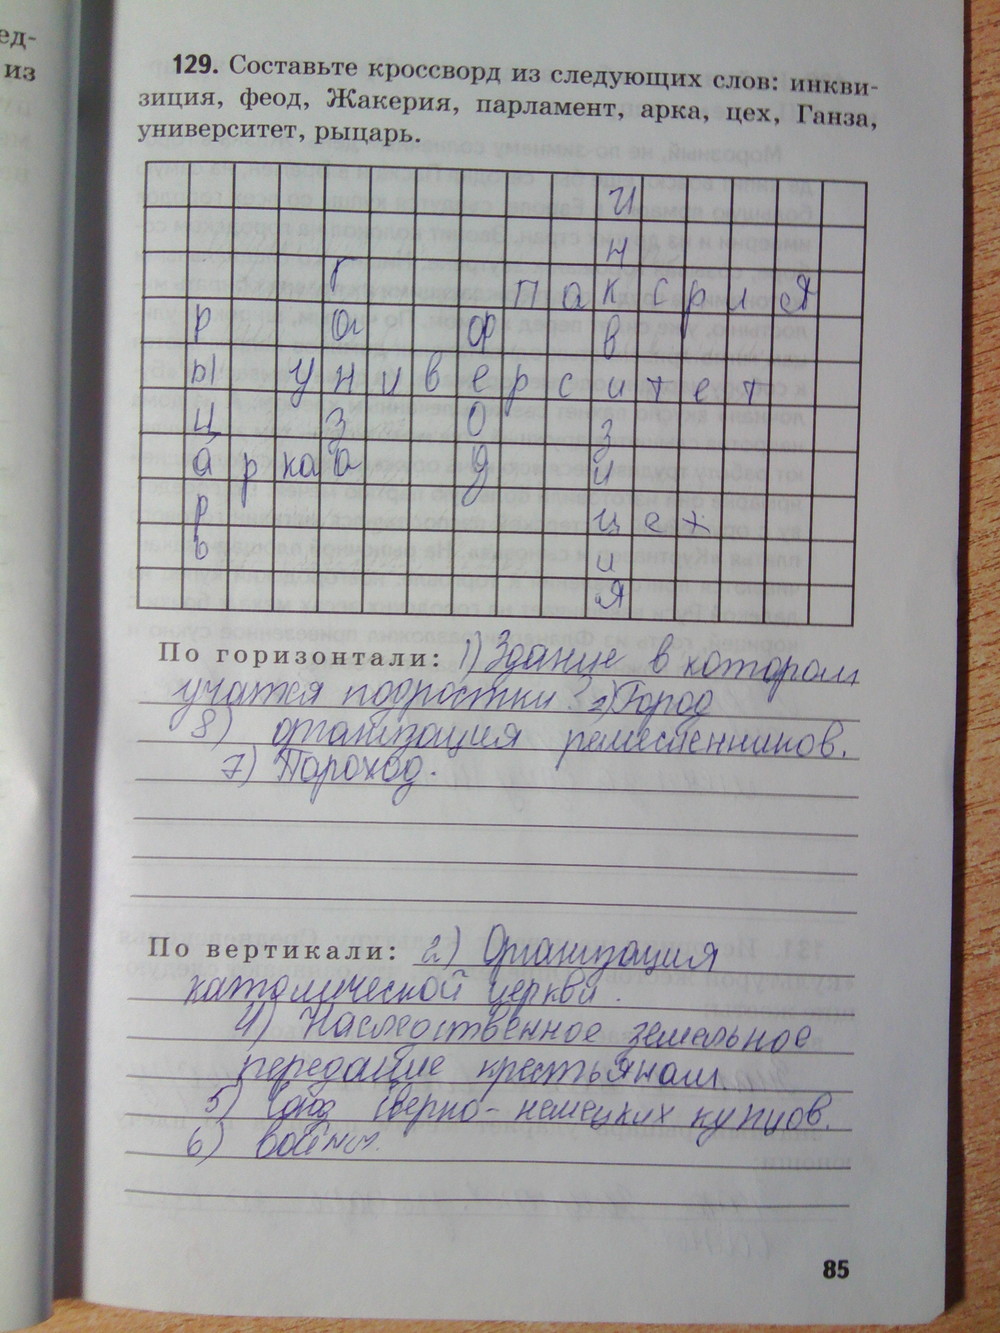 ед-
из
129. Составьте кроссворд из следующих слов: инкви-
зиция, феод, Жакерия, парламент, арка, цех, Ганза,
университет, рыцарь.
И
н
Г п а к е р и я
р а ф в
ы у н и в е р с и т е т
ц з о з
а р к а а д и
р ц е х
ь и
я
По горизонтали: 1) Здание в котором
учатся подростки? 3) Город
8) организация ремесленников.
7) Пароход.
По вертикали: 2) Организация
католической церкви.
4) Наследственное земельное
крестьянам.
5) Союз сверно-немецких купцов.
6) воины.
85